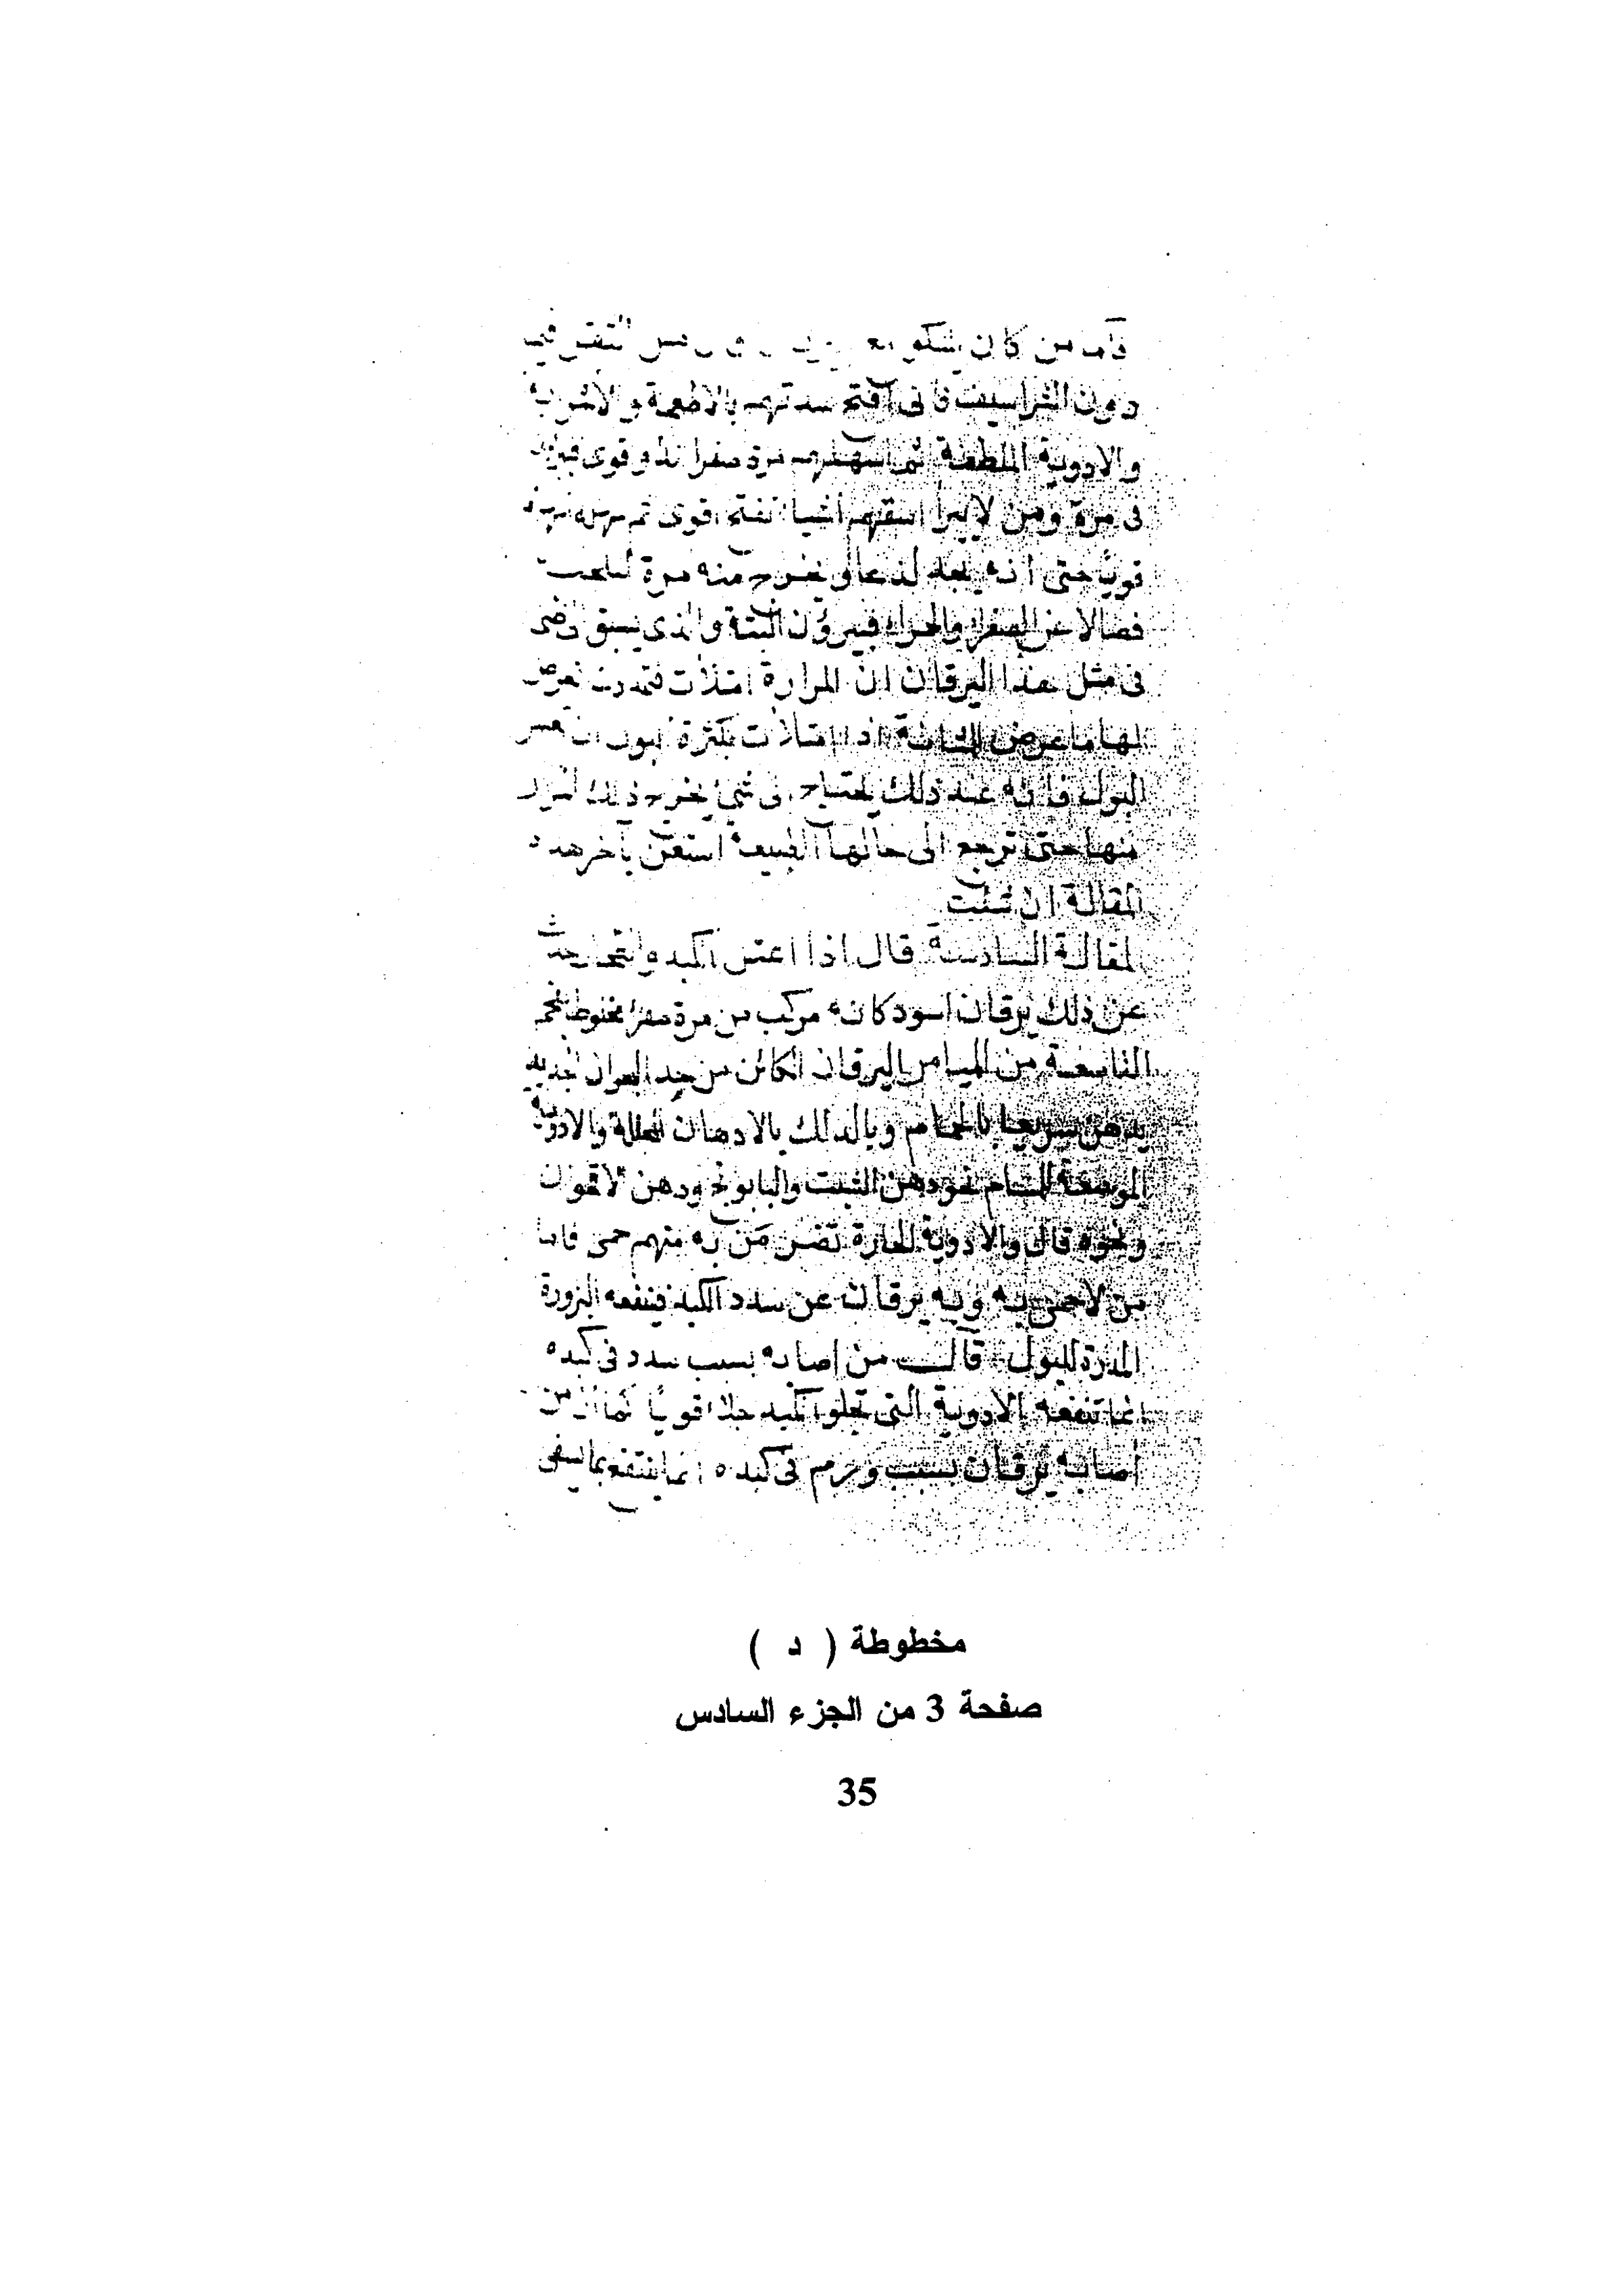 فاما من كان يشكو
دون الشراسيف فانى افتح سددهم بالاطعمة والاشربة
والادوية الملطفة ثم اسهلهم مرة صفرا بدوا قوى
فى مرة ومن لا يبرأ اسقيهم اشيا تفتح اقوى ثم
قويا حتى انه يجد لذعا و يخرج منه مرة
فضالا عن الصفرا والحرا فيبرؤن البتة والذى يسبق
فى مثل هذا اليرقان ان المرارة امتلأت فتمددت فعرض
لها ما عرض للمثانة اذا امتلأت بكثرة البول ان عسر
البول فانه عند ذلك يحتاج الى شئ يخرج ذلك
منها حتى ترجع الى حالها الطبيعة استعن بآخر هذه
المقالة ان شئت
المقالة السادسة قال اذا اعتل الكبد والطحال حدث
عن ذلك يرقان اسود كانه مركب من مرة صفرا مخلوطة
التاسعة من الميامر اليرقان الكائن من جيد البحران
يذهن سريعا بالحمام وبالدلك بالادهان المحللة والادوية
الموسعة للمسام نحو دهن الشبت والبابونج ودهن الاقحوان
ونحوه قال والادوية الحارة تضر من به منهم حمى فاما
من لا حمى به وبه يرقان عن سدد الكبد فينفعه البزورة
المدرة للبول قال من اصابه بسبب سدد فى كبده
انما تنفعه الادوية التى تجلو الكبد جلاء قويا كما ان من
اصابه يرقان بسبب ورم فى كبده انما ينتفع بما
مخطوطة ( د )
صفحة 3 من الجزء السادس
35